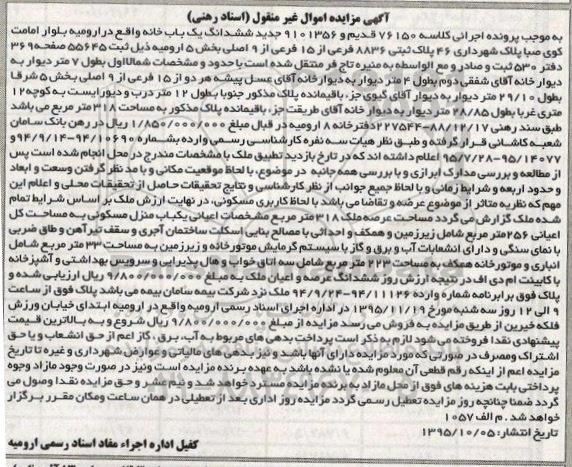 آگهی مزایده اموال غیر منقول (اسناد رهنی)
به موجب پرونده اجرائی کلاسه ۷۶۱۵۰ قدیم و ۹۱۰۱۳۵۶ جدید ششدانگ یک باب خانه واقع در ارومیه بلوار امامت
کوی صبا پلاک شهرداری ۴۶ پلاک ثبتی ۸۸۳۶ فرعی از ۱۵ فرعی از ۹ اصلی بخش ۵ ارومیه ذیل ثبت ۵۵۶۴۵ صفحه ۳۶۹
دفتر ۵۳۰ ثبت و صادر و مع الواسطه به منیره تاج فر منتقل شده است با حدود و مشخصات شمالا اول بطول ۷ متر دیوار به
دیوار خانه آقای شفقی دوم بطول ۴ متر دیوار به دیوار خانه آقای عسل پیشه هر دو از ۱۵ فرعی از ۹ اصلی بخش ۵ شرقا
بطول ۲۹/۱۰ متر دیوار به دیوار آقای گیوی جز، باقیمانده پلاک مذکور جنوبا بطول ۱۲ متر درب و دیوار یست به کوچه ۱۲
متری غربا بطول ۲۸/۸۵ متر دیوار به دیوار خانه آقای طریقت جز، باقیمانده پلاک مذکور به مساحت ۳۱۸ متر مربع می باشد
طبق سند رهنی ۸۸/۱۲/۱۷-۲۲۷۵۴۴ دفترخانه ۸ ارومیه در قبال مبلغ ۱/۸۵۰/۰۰۰/۰۰۰ ریال در رهن بانک سامان
شعبه کاشانی قرار گرفته و طبق نظر هیات سه نفره کارشناسی رسمی وارده بشماره ۹۴/۱۰۶۹۰-۹۴/۹/۱۴ و
۹۵/۱۴۰۷۷-۹۵/۷/۲۸ اعلام داشته اند که در تاریخ بازدید تطبیق ملک با مشخصات مندرج در محل انجام شده است پس
از مطالعه و بررسی مدارک ابرازی و با بررسی همه جانبه در موضوع، با لحاظ موقعیت مکانی و با مد نظر گرفتن وسعت و ابعاد
و حدود اربعه و شرایط زمانی و با لحاظ جمیع جوانب از نظر کارشناسی و نتایج تحقیقات حاصل از تحقیقات محلی و اعلام این
مهم که نظریه متاثر از موضوع عرضه و تقاضا می باشد با لحاظ کاربری مسکونی، در نهایت ارزش ملک بر اساس شرایط تمام
شده ملک گزارش می گردد مساحت عرصه ملک ۳۱۸ متر مربع مشخصات اعیانی یکباب منزل مسکونی به مساحت کل
اعیانی ۲۵۶ متر مربع شامل زیرزمین و همکف و احداثی با مصالح بنایی اسکلت ساختمان آجری و سقف تیرآهن و طاق ضربی
با نمای سنگی و دارای انشعابات آب و برق و گاز با سیستم گرمایش موتورخانه و زیرزمین به مساحت ۳۳ متر مربع شامل
انباری و موتورخانه همکف به مساحت ۲۲۳ متر مربع شامل سه اتاق خواب و هال پذیرایی و سرویس بهداشتی و آشپزخانه
با کابینت ام دی اف در نتیجه ارزش روز ششدانگ عرصه و اعیان ملک به مبلغ ۹/۸۰۰/۰۰۰/۰۰۰ ریال ارزیابی شده و
پلاک فوق برابر نامه شماره وارده ۹۴/۱۱۱۲۶-۹۴/۹/۲۴ ملک نزد شرکت بیمه سامان بیمه می باشد پلاک فوق از ساعت
۹ الی ۱۲ روز سه شنبه مورخ ۱۳۹۵/۱۱/۱۹ در اداره اجرای اسناد رسمی ارومیه واقع در ارومیه ابتدای خیابان ورزش
فلکه خیرین از طریق مزایده به فروش می رسد مزایده از مبلغ ۹/۸۰۰/۰۰۰/۰۰۰ ریال شروع و به بالاترین قیمت
پیشنهادی نقدا فروخته می شود لازم به ذکر است پرداخت بدهی های مربوط به آب، برق، گاز اعم از حق انشعاب و یا حق
اشتراک و مصرف در صورتی که مورد مزایده دارای آنها باشد و نیز بدهی های مالیاتی و عوارض شهرداری و غیره تا تاریخ
مزایده اعم از اینکه رقم قطعی آن معلوم شده یا نشده باشد به عهده برنده مزایده است ونیز در صورت وجود مازاد وجوه
پرداختی بابت هزینه های فوق از محل مازاد به برنده مزایده مسترد خواهد شد و نیم عشر و حق مزایده نقدا وصول می
گردد ضمنا چنانچه روز مزایده تعطیل رسمی گردد مزایده روز اداری بعد از تعطیلی در همان ساعت ومکان مقرر برگزار
خواهد شد . م الف ۱۰۵۷
تاریخ انتشار: ۱۳۹۵/۱۰/۰۵
کفیل اداره اجراء مفاد اسناد رسمی ارومیه